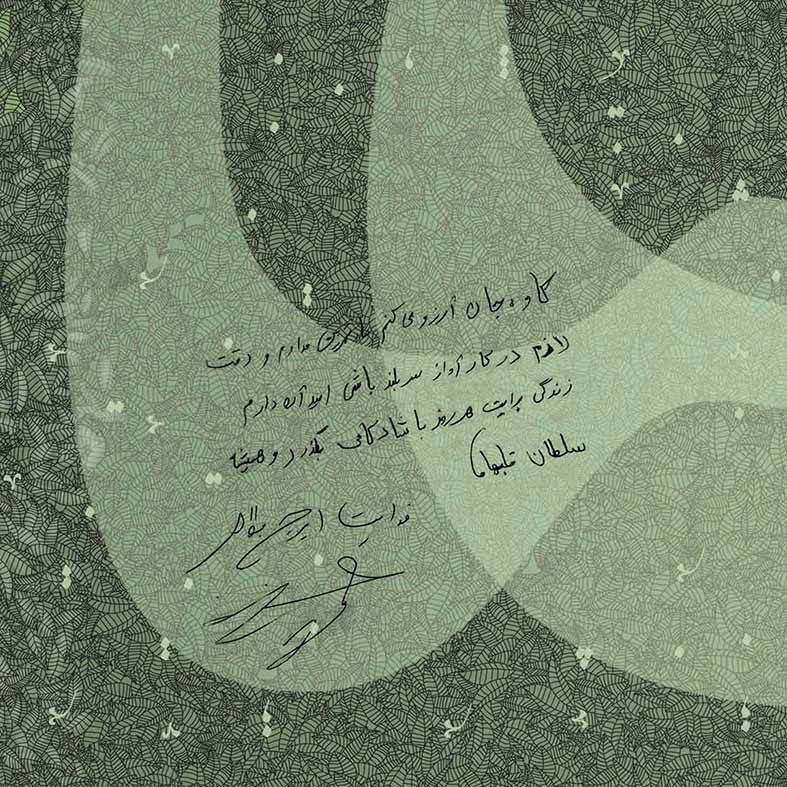 کاوه جان آرزو می کنم با تمرین مداوم و دقت
لازم در کار آواز سربلند باشی امید آن دارم
زندگی برایت هر روز با شادکامی بگذرد و همیشه
سلطان قلبها
فدایت ایرج